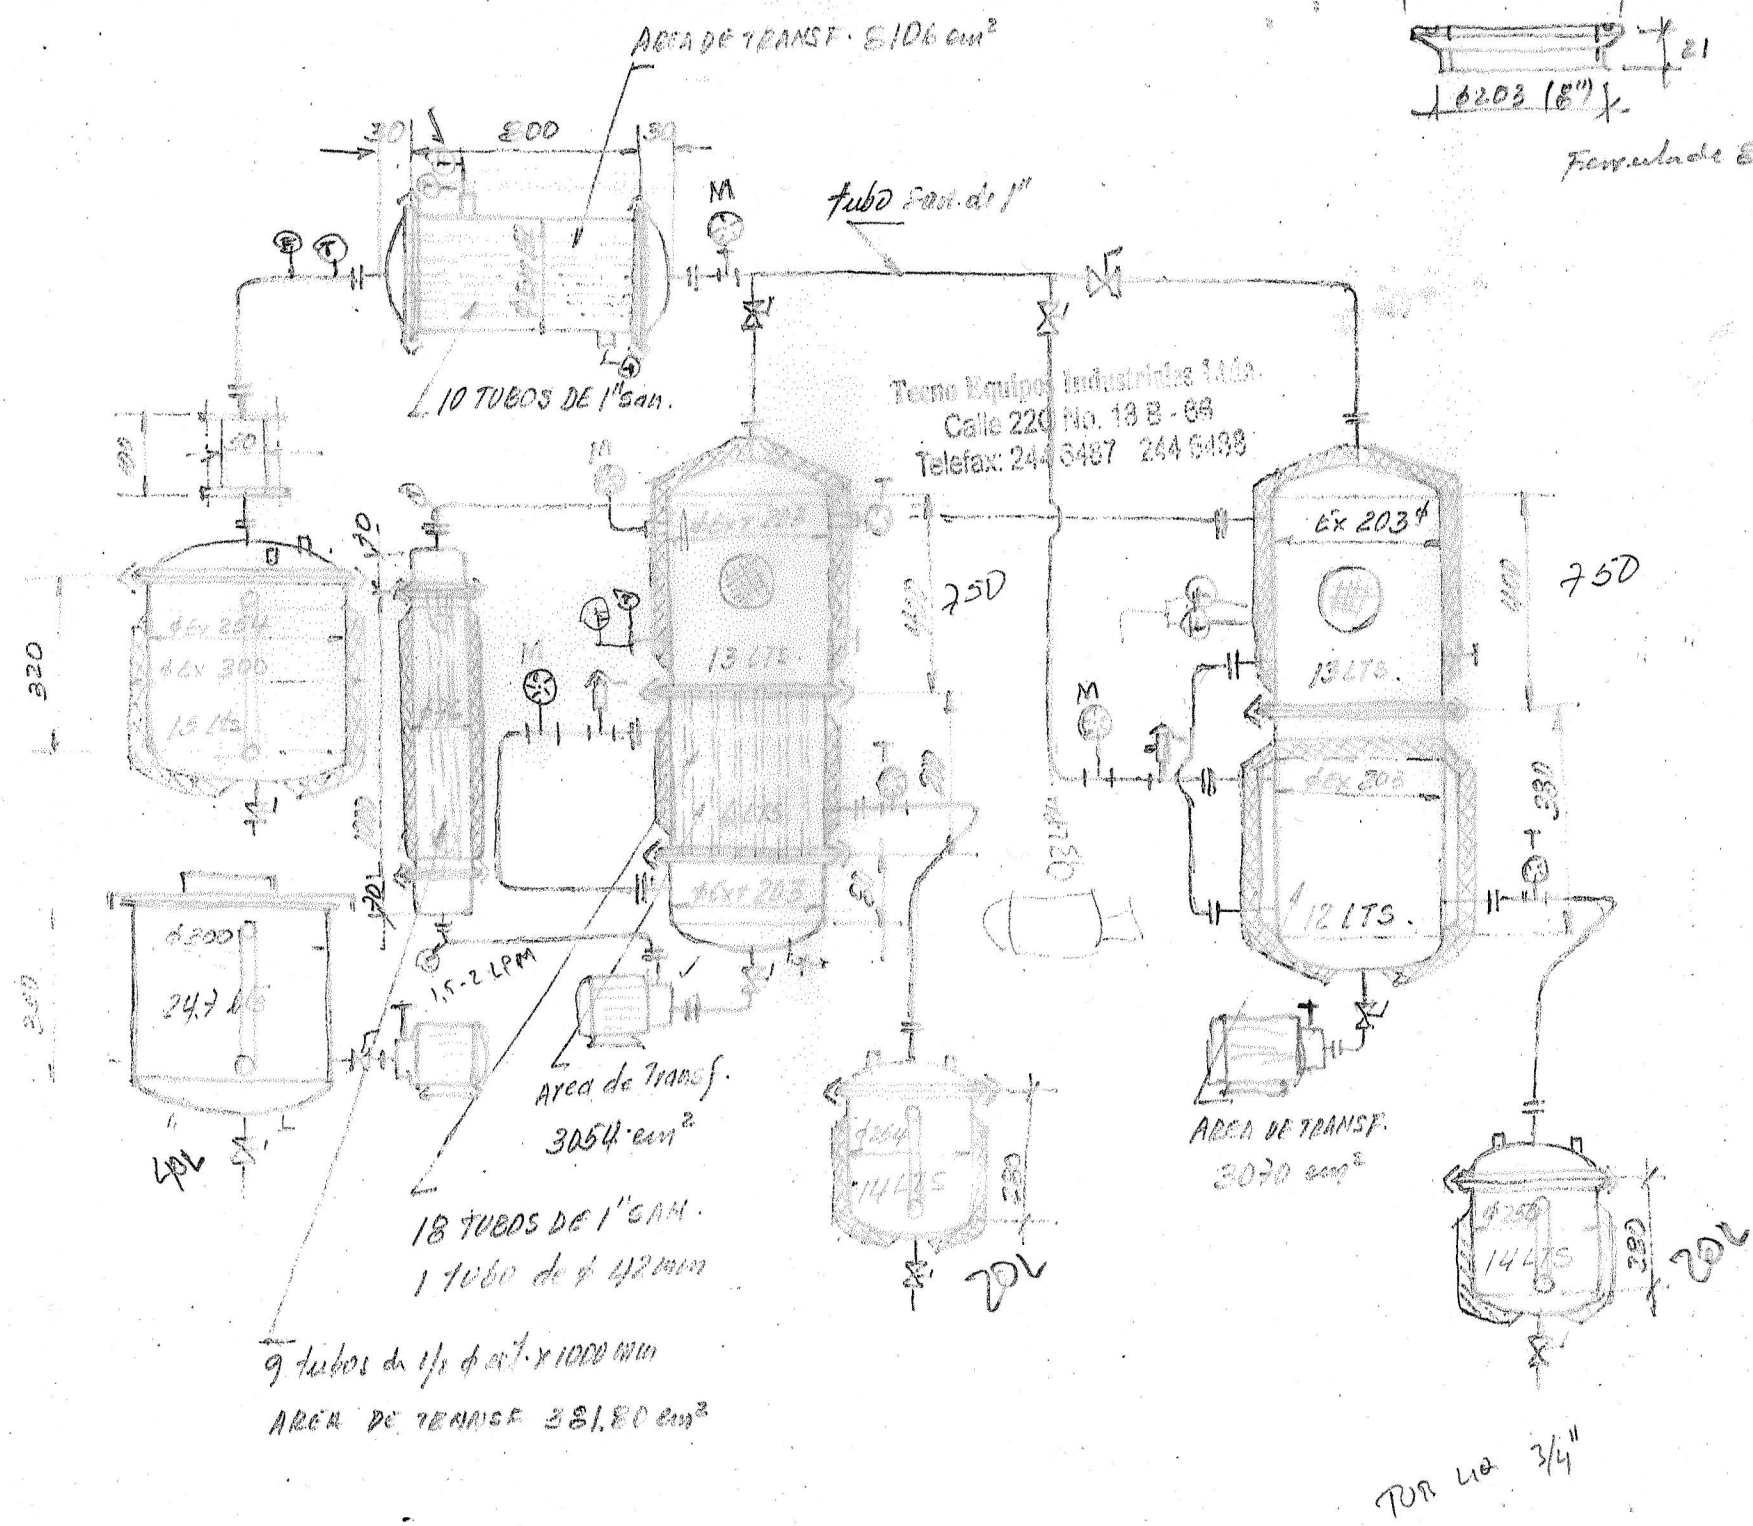 AREA DE TRANSF. 8106 cm²
21
ø203 (8")
Ferrula de 8
30
800
30
M
tubo san. de 1"
T
10 TUBOS DE 1" San.
Tecno Equipos Industriales Ltda.
Calle 22C No. 18 B - 66
Telefax: 244 6487 244 6498
M
50
30
øExt 203
Ex 203 ø
400
750
400
750
320
øEx 254
øEx 300
15 Lts
M
13 LTS.
13 LTS.
M
øEx 203
330
LTS
øExt 203
12 LTS.
ø300
24.7 lts
1.5-2 LPM
40L
Area de Transf.
3054 cm²
AREA DE TRANSF.
3070 cm²
ø254
14 LTS
280
20L
ø254
14 LTS
280
20L
18 TUBOS DE 1" SAN.
1 tubo de ø 42 mm
9 tubos de 1/2 ø ext. x 1000 mm
AREA DE TRANSF 381.80 cm²
TUB LIQ 3/4"